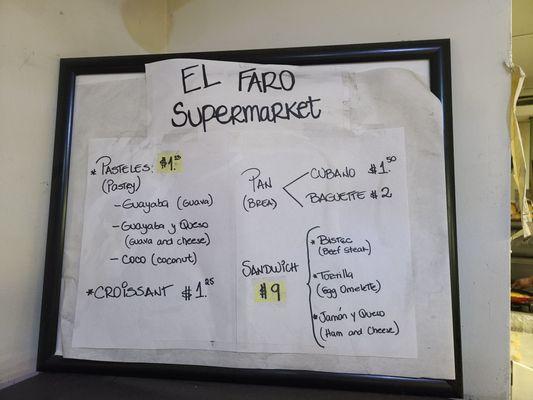 EL FARO
SUPERMARKET
* PASTELES:
(Pastry)
- Guayaba (Guava)
- Guayaba y Queso
(Guava and cheese)
- Coco (coconut)
* CROISSANT $1.25
PAN
(BREA)
CUBANO $1.50
BAGUETTE $2
SANDWICH
$9
* BISTEC
(Beef Steak)
* TORTILLA
(Egg Omelette)
* JAMÓN y QUESO
(HAM and CHEESE)